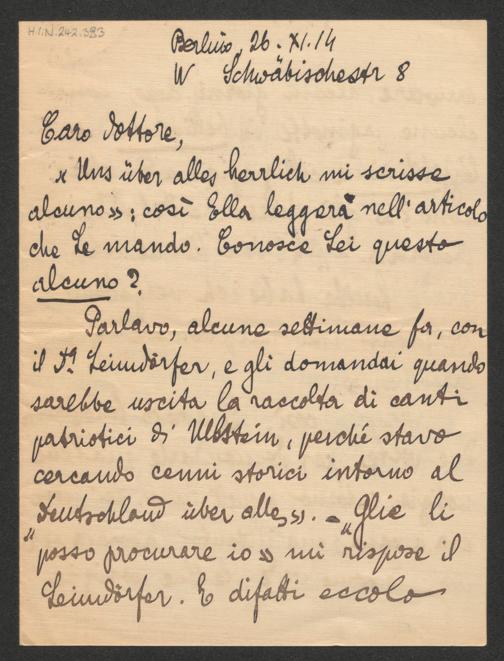 H.I.N. 242.383
Berlino, 26. XI. 14
W Schwäbischestr 8
Caro dottore,
« Uns über alles herrlich mi scrisse
alcuno »; così Ella leggerà nell'articolo
che Le mando. Conosce Lei questo
alcuno?
Parlavo, alcune settimane fa, con
il Dr Leimdörfer, e gli domandai quando
sarebbe uscita la raccolta di canti
patriotici d' Ullstein, perché stavo
cercando cenni storici intorno al
« Deutschland über alles ». - « Glie li
" posso procurare io » mi rispose il
Leimdörfer. E difatti eccolo